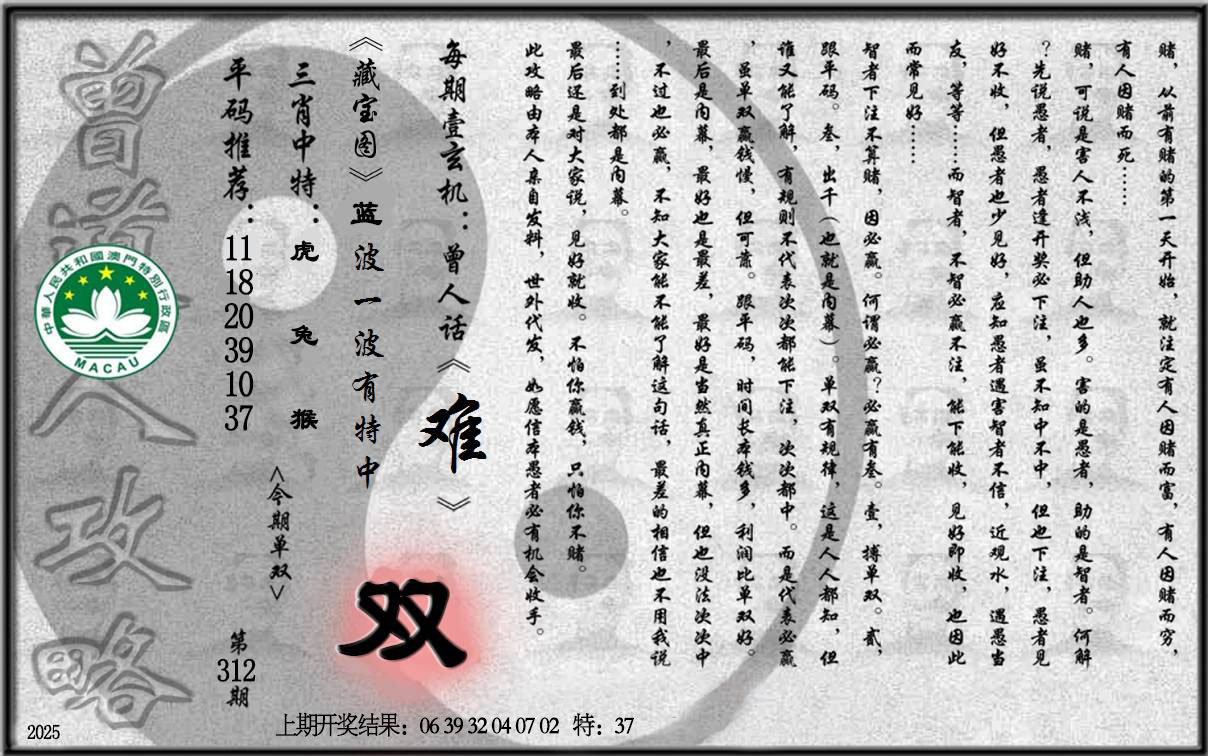 赌，从前有赌的第一天开始，就注定有人因赌而富，有人因赌而穷，
有人因赌而死……
赌，可说是害人不浅，但助人也多。害的是愚者，助的是智者。何解
？先说愚者，愚者逢开奖必下注，虽不知中不中，但也下注，愚者见
好不收，但愚者也少见好，应知愚者遇害智者不信，近观水，遇愚当
友，等等……而智者，不智必赢不注，能下能收，见好即收，也因此
而常见好……
智者下注不算赌，因必赢。何谓必赢？必赢有叁。壹，搏单双。贰，
跟平码。叁，出千（也就是内幕）。单双有规律，这是人人都知，但
谁又能了解，有规则不代表次次都能下注，次次都中。而是代表必赢
，虽单双赢钱慢，但可靠。跟平码，时间长本钱多，利润比单双好。
最后是内幕，最好也是最差，最好是当然真正内幕，但也没法次次中
，不过也必赢，不知大家能不能了解这句话，最差的相信也不用我说
……到处都是内幕。
最后还是对大家说，见好就收。不怕你赢钱，只怕你不赌。
此攻略由本人亲自发料，世外代发，如愿信本愚者必有机会收手。
每期壹玄机：曾人话《难》
《藏宝图》蓝波一波有特中
双
三肖中特：虎 兔 猴
<今期单双>
平码推荐：11 18 20 39 10 37
第312期
曾道人攻略
中華人民共和國澳門特別行政區
MACAU
2025
上期开奖结果：06 39 32 04 07 02 特：37